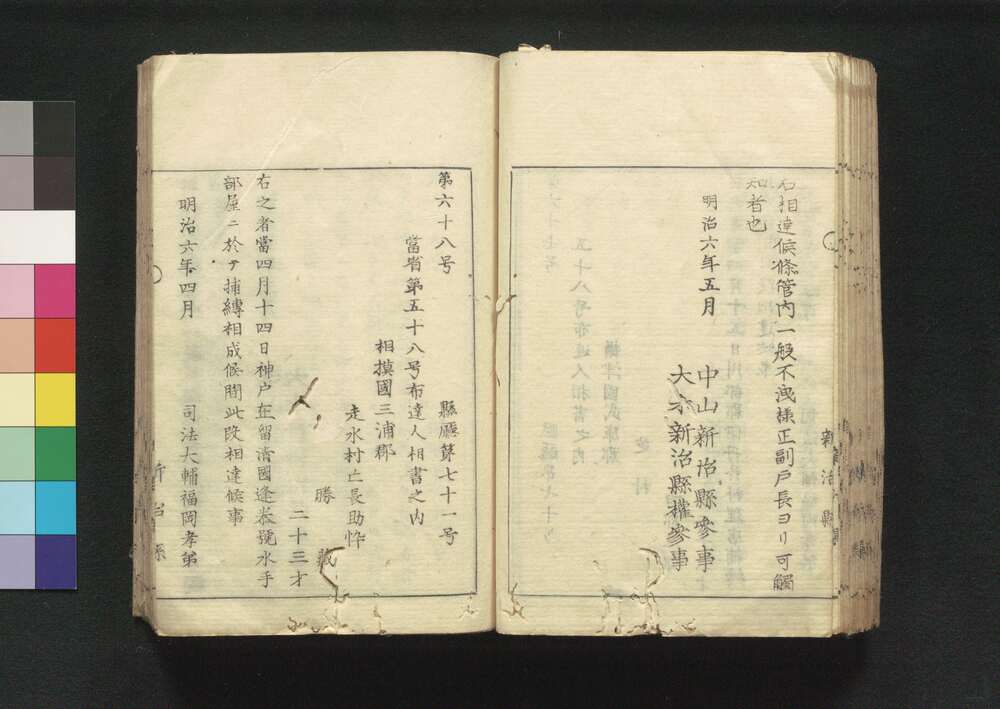 右相達候條管内一般不洩様正副戸長ヨリ可觸
知者也
明治六年五月
中山新治縣參事
大木新治縣權參事
新治縣
第六十八号
縣廳第七十一号
當省第五十八号布達人相書之内
相摸國三浦郡
走水村亡長助忰
勝藏
二十三才
右之者當四月十四日神戸在留清國逢恭號水手
部屋ニ於テ捕縛相成候間此段相達候事
明治六年四月
司法大輔福岡孝弟